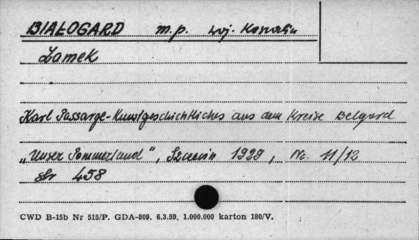 BIAŁOGARD m.p. woj. Koszalin
Zamek
Karl Passarge - Kunstgeschichtliches aus dem Kreise Belgard
„Unser Pommerland", Szczecin 1929, Nr. 11/12
str 458
CWD B-15b Nr 515/P. GDA-809. 6.3.59. 1.000.000 karton 180/V.